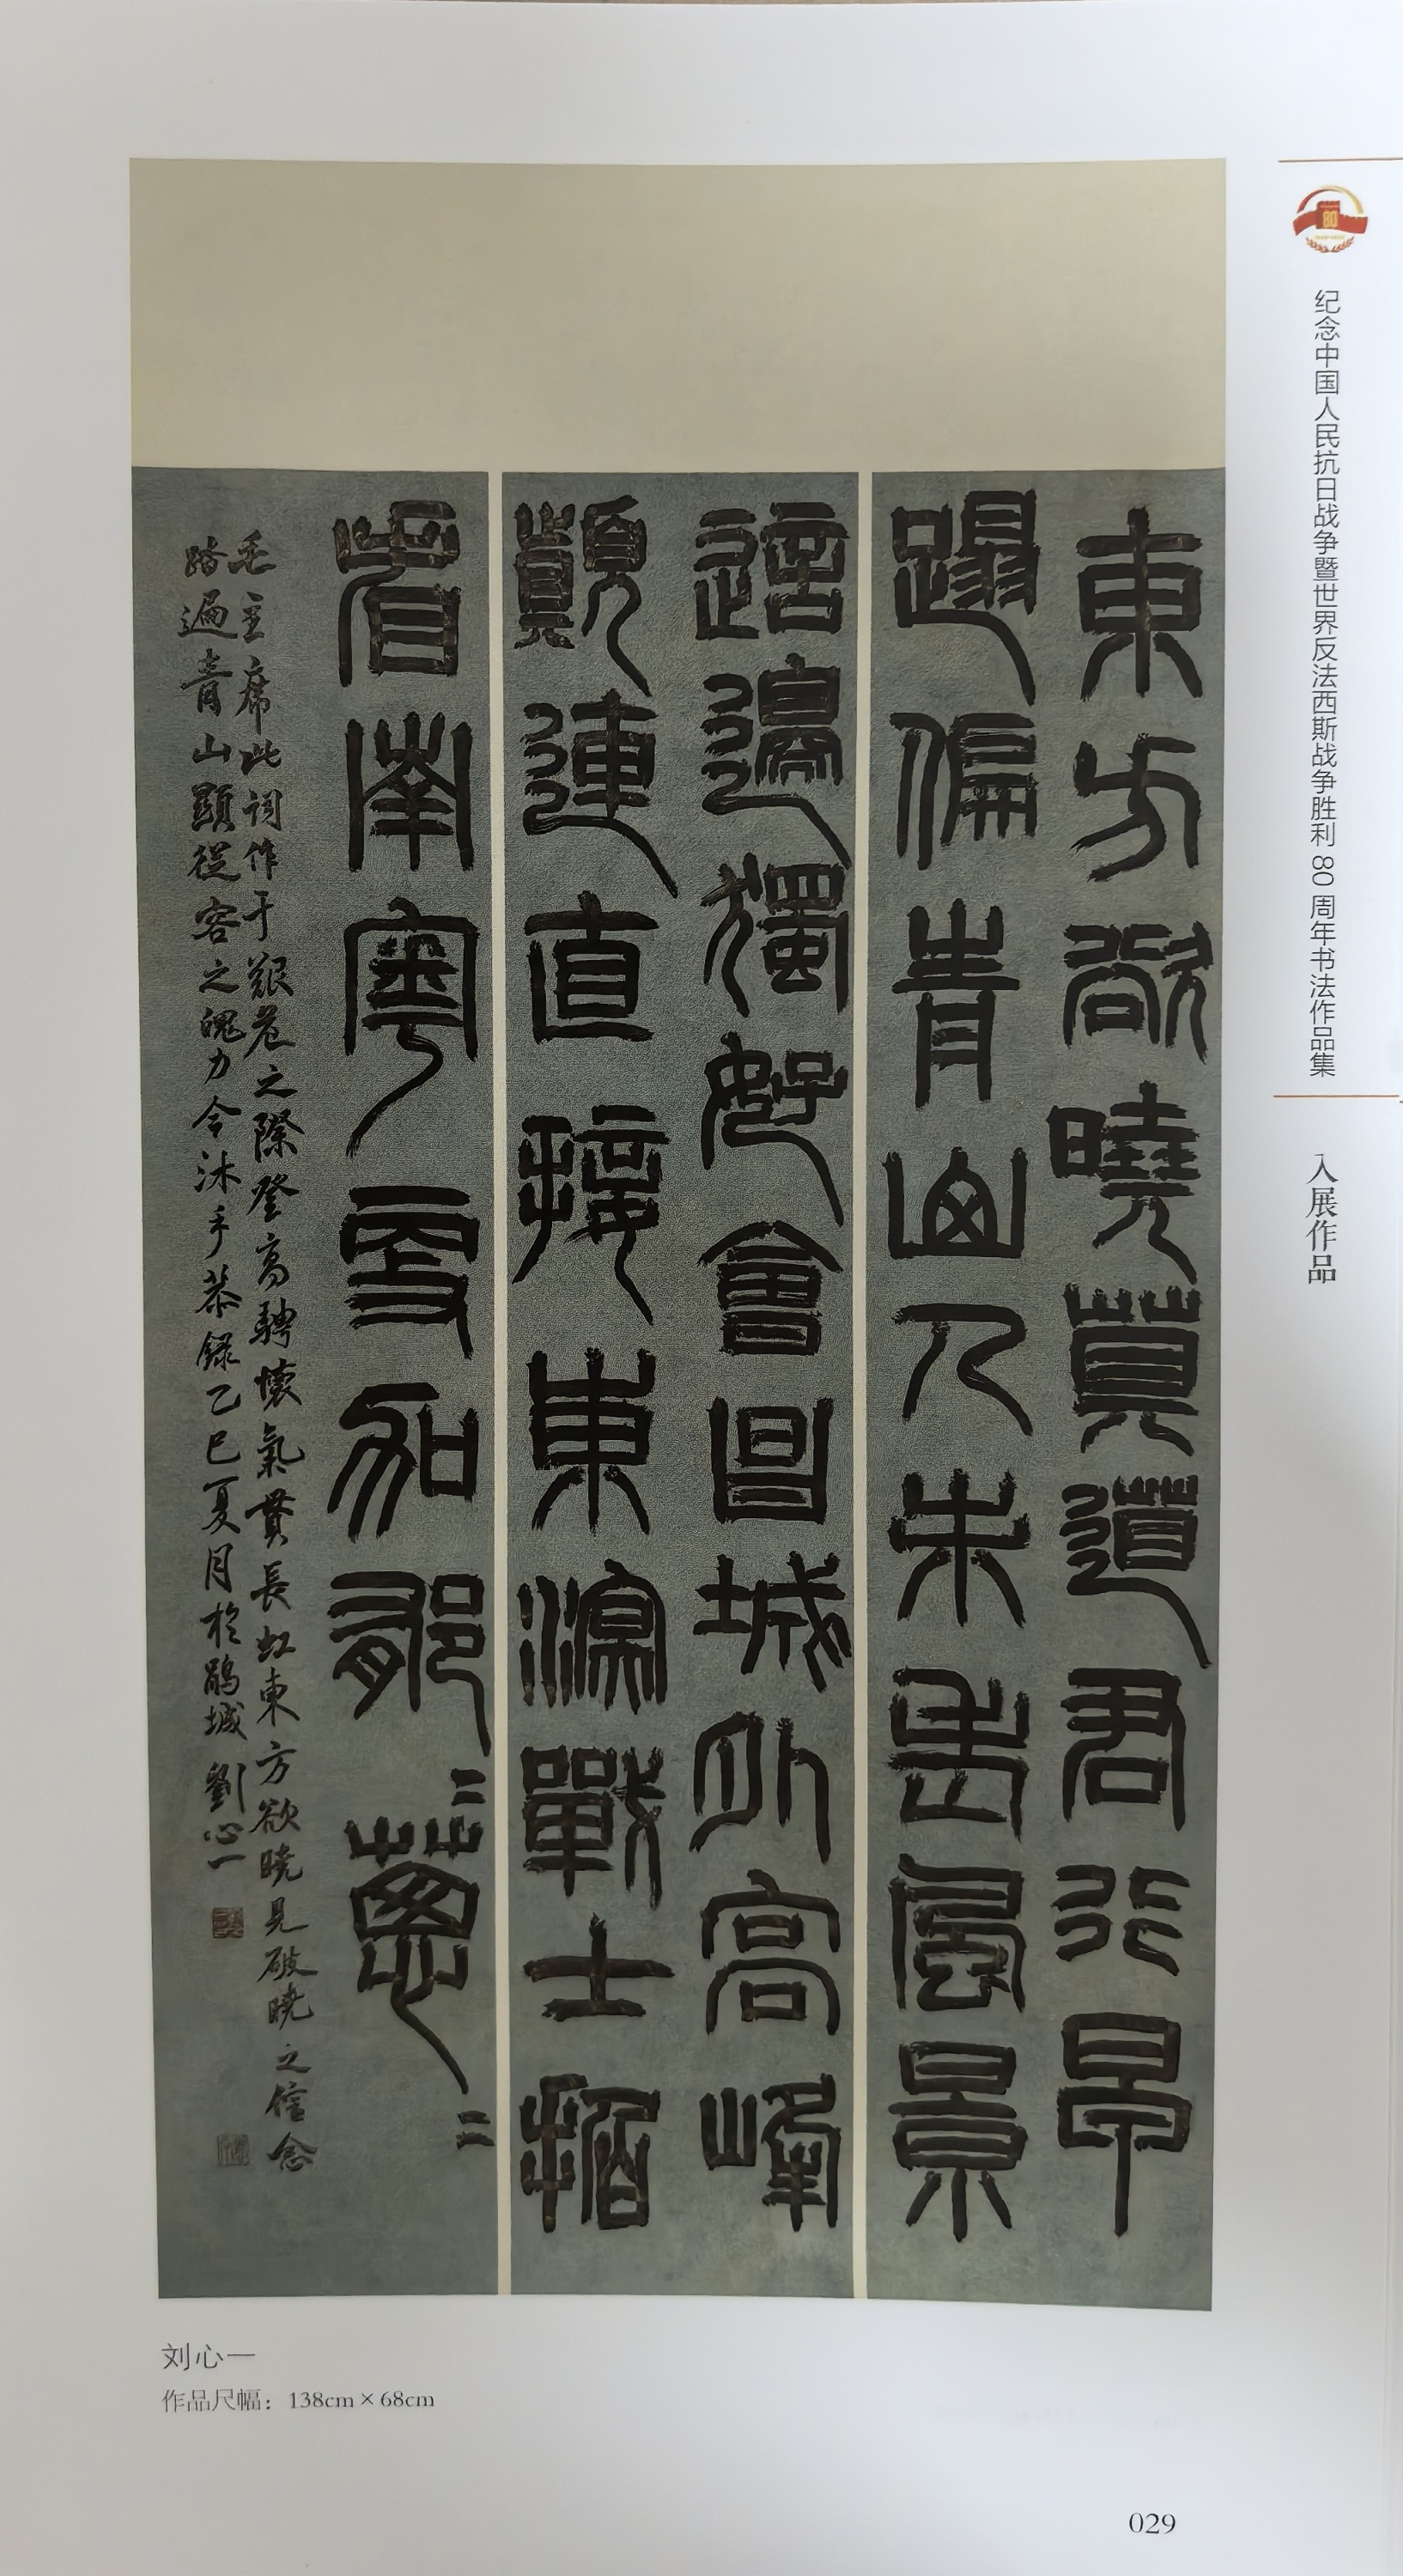 東方欲曉莫道君行早
蹋偏青山人未老風景
這邊獨好會昌城外高峰
顛連直接東溟戰士指
看南粵更加郁二蔥二
毛主席此詞作于艱危之際登高騁懷氣貫長虹東方欲曉見破曉之信念
踏遍青山顯從容之魄力今沐手恭錄乙巳夏月於鵑城劉心一
80
纪念中国人民抗日战争暨世界反法西斯战争胜利80周年书法作品集
入展作品
刘心一
作品尺幅：138cm×68cm
029